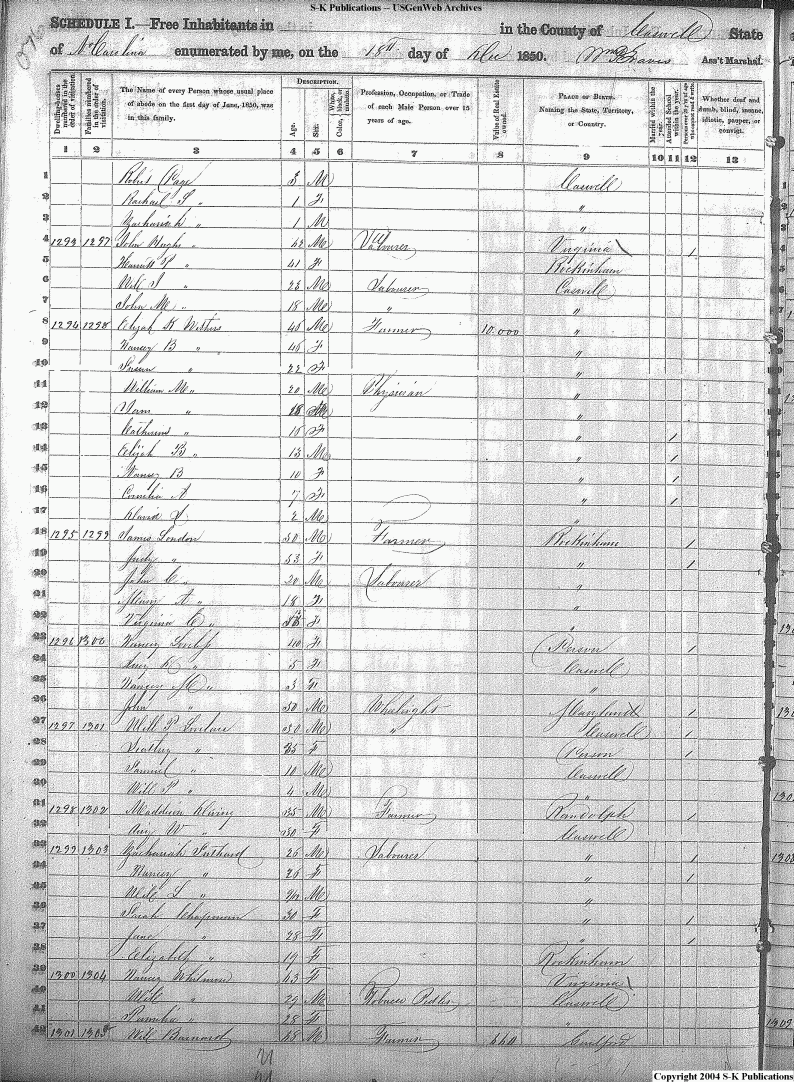 S-K Publications -- USGenWeb Archives
SCHEDULE I.—Free Inhabitants in in the County of Caswell State
of N Carolina enumerated by me, on the 18th day of Dec 1850. Wm Graves Ass't Marshal.
Dwelling-houses numbered in the order of visitation.
Families numbered in the order of visitation.
The Name of every Person whose usual place of abode on the first day of June, 1850, was in this family.
DESCRIPTION.
Age.
Sex.
Color, White, black, or mulatto.
Profession, Occupation, or Trade of each Male Person over 15 years of age.
Value of Real Estate owned.
PLACE OF BIRTH. Naming the State, Territory, or Country.
Married within the year.
Attended School within the year.
Persons over 20 y'rs of age who cannot read & write.
Whether deaf and dumb, blind, insane, idiotic, pauper, or convict.
1 2 3 4 5 6 7 8 9 10 11 12 13
1 Robert Page 3 M Caswell
2 Rachael S " 1 F "
3 Zachariah " 1 M "
4 1293 1297 John Hughs " 62 M Labourer Virginia /
5 Harriett P " 41 F Rockinham
6 Will J " 23 M Labourer Caswell
7 John M " 18 M " "
8 1294 1298 Elijah K Withers 46 M Farmer 10.000 "
9 Nancy B " 46 F "
10 Susan " 22 F "
11 William M " 20 M Physician "
12 Sam " 18 M "
13 Cathrine " 16 F " /
14 Elijah B " 13 M " /
15 Nancy B 10 F " /
16 Cornelia A 7 F " /
17 David S 2 M "
18 1295 1299 James London 50 M Farmer Rockinham /
19 Judy " 53 F " /
20 John C " 20 M Labourer "
21 A " 18 F "
22 Virginia C " F "
23 1296 1300 Nancy 40 F Person /
24 " 5 F Caswell
25 Nancy M " 3 F "
26 John " 50 M Whelright Maryland /
27 1297 1301 Will P Lovelace 30 M " Caswell /
28 " 35 F Person /
29 Samuel " 10 M Caswell
30 Will P " 4 M "
31 1298 1302 Maddison 35 M Farmer Randolph
32 W " 30 F Caswell
33 1299 1303 Zachariah Suthard 26 M Labourer " /
34 Nancy " 26 F " /
35 Will L " M "
36 Sarah Chapman 30 F " /
37 Jane " 28 F " /
38 Elizabeth " 19 F Rockinham
39 1300 1304 Nancy Whitmore 43 F Virginia
40 Will " 29 M Tobacco Pedler Caswell
41 Pamelia " 28 F "
42 1301 1305 Will Barnard 48 M Farmer 660 Guilford
Copyright 2004 S-K Publications